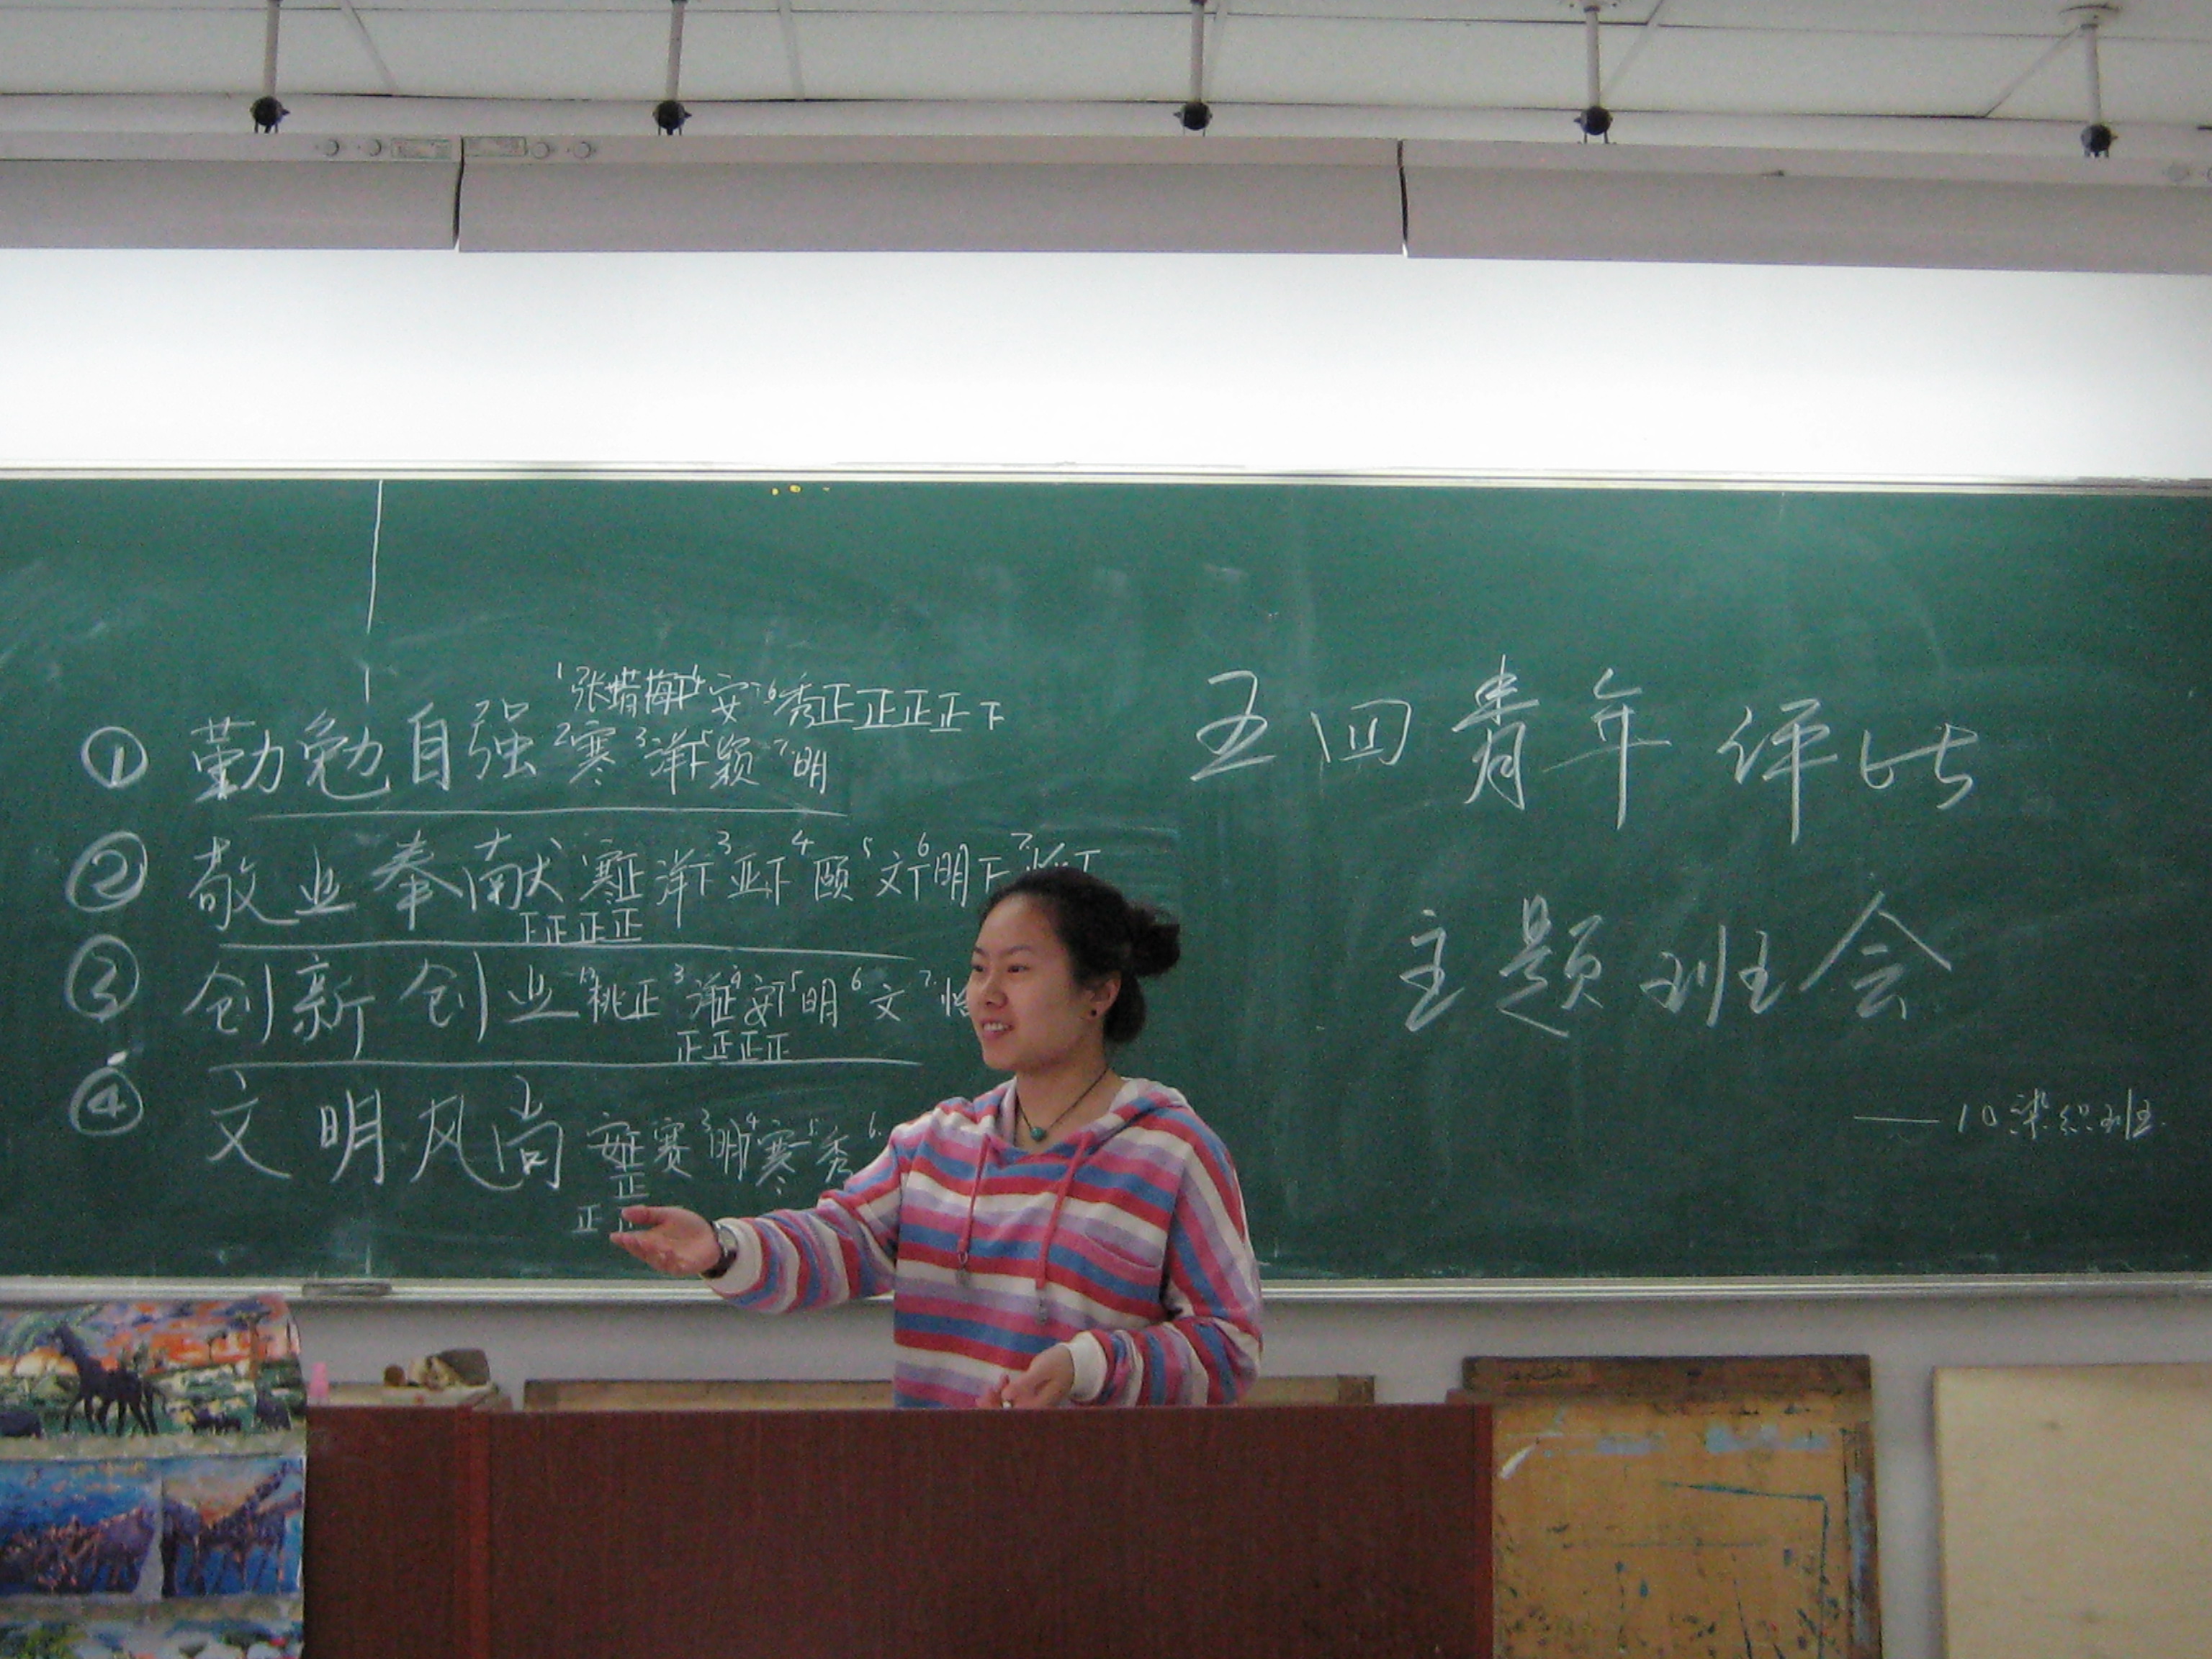 ① 勤勉自强 1张婧梅 4安 6秀正正正正下
2寒 3洋 5颖 7明
② 敬业奉献 寒正 洋 3亚下 4颐 5文 6明下 7
下正正正
③ 创新创业 桃正 3洋正 4安 5明 6文 7怡
正正正正
④ 文明风尚 安正 赛 3明 4寒 5秀 6
正
正
五四青年评比
主题班会
——10染织班